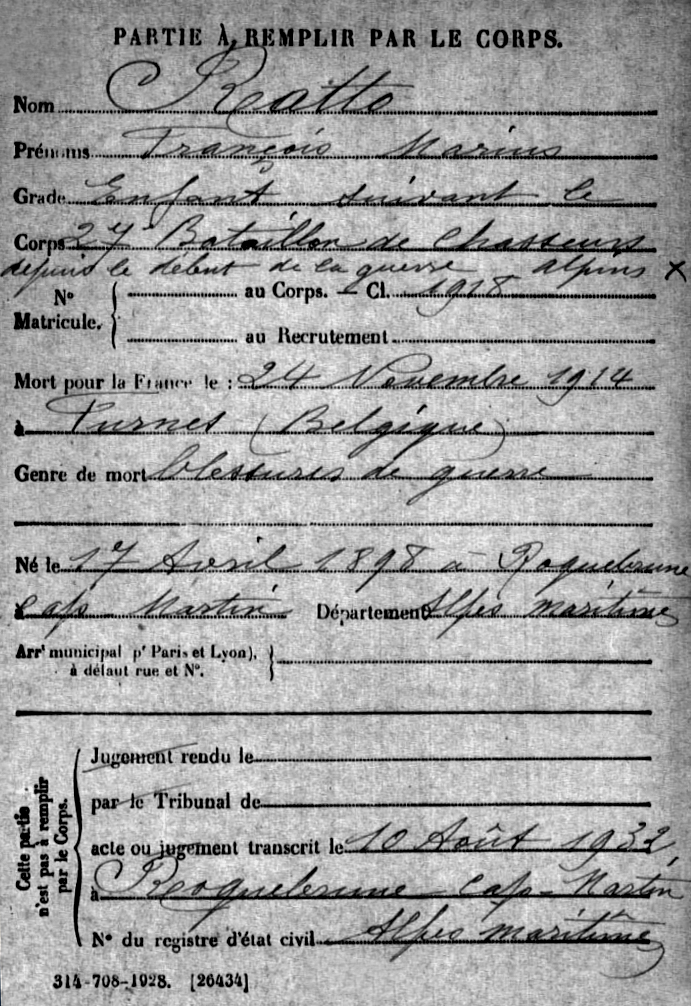 PARTIE À REMPLIR PAR LE CORPS.
Nom Ratto
Prénoms François Marius
Grade Enfant suivant le
Corps 27e Bataillon de Chasseurs
depuis le début de la guerre alpins X
No Matricule. { au Corps. — Cl. 1918
au Recrutement
Mort pour la France le : 24 Novembre 1914
à Furnes (Belgique)
Genre de mort blessures de guerre
Né le 17 Avril 1898 à Roquebrune
à Cap Martin Département Alpes Maritimes
Arrt municipal pr Paris et Lyon), à défaut rue et No. }
Cette partie n'est pas à remplir par le Corps.
Jugement rendu le
par le Tribunal de
acte ou jugement transcrit le 10 Août 1932
à Roquebrune - Cap - Martin
No du registre d'état civil Alpes maritimes
314-708-1928. [26434]